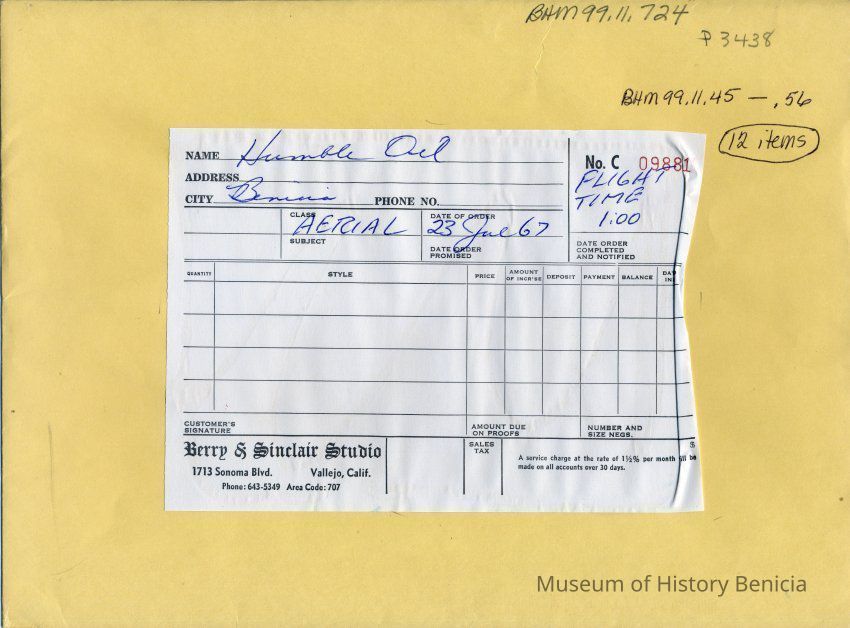 BHM 99.11.724
P 3438
BHM 99.11.45 — .56
12 items
NAME Humble Oil
No. C 09881
ADDRESS
FLIGHT
TIME
1:00
CITY Benicia PHONE NO.
CLASS AERIAL
SUBJECT
DATE OF ORDER
23 Jul 67
DATE ORDER
PROMISED
DATE ORDER
COMPLETED
AND NOTIFIED
QUANTITY STYLE PRICE AMOUNT OF INCR'SE DEPOSIT PAYMENT BALANCE DAY IN
CUSTOMER'S
SIGNATURE
AMOUNT DUE
ON PROOFS
NUMBER AND
SIZE NEGS.
Berry & Sinclair Studio
1713 Sonoma Blvd. Vallejo, Calif.
Phone: 643-5349 Area Code: 707
SALES
TAX
$
A service charge at the rate of 1½% per month will be
made on all accounts over 30 days.
Museum of History Benicia